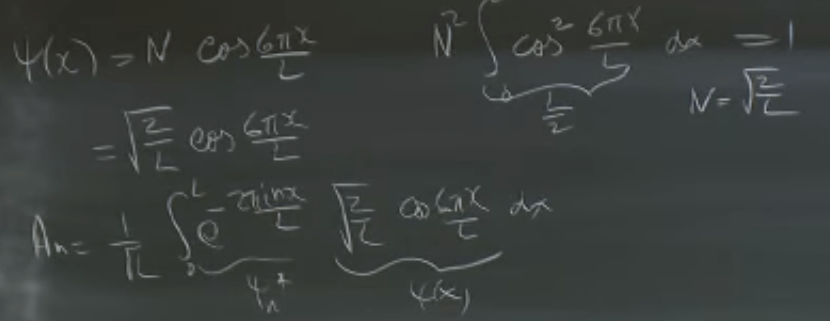 ψ(x) = N cos 6πx/L
N² ∫₀ cos² 6πx/L dx = 1
L/2
N = √(2/L)
= √(2/L) cos 6πx/L
Aₙ = 1/√L ∫₀ᴸ e^(-2πinx/L) √(2/L) cos 6πx/L dx
ψₙ* ψ(x)